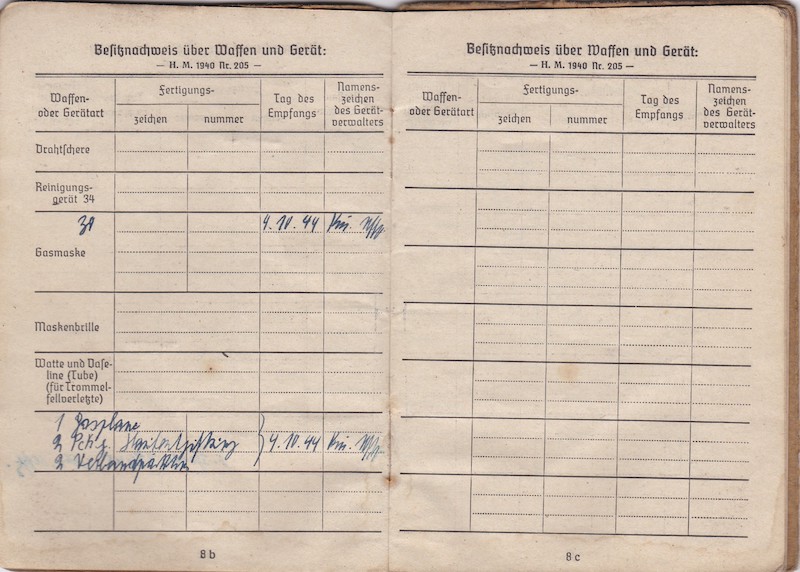 Besitznachweis über Waffen und Gerät:
— H. M. 1940 Nr. 205 —
Waffen-
oder Gerätart
Fertigungs-
zeichen
nummer
Tag des
Empfangs
Namens-
zeichen
des Gerät-
verwalters
Drahtschere
Reinigungs-
gerät 34
30 4.10.44
Gasmaske
Maskenbrille
Watte und Vase-
line (Tube)
(für Trommel-
fellverletzte)
1 Gasplane
2 Pckg. 4.10.44
2 Verbandpäckchen
8 b
Besitznachweis über Waffen und Gerät:
— H. M. 1940 Nr. 205 —
Waffen-
oder Gerätart
Fertigungs-
zeichen
nummer
Tag des
Empfangs
Namens-
zeichen
des Gerät-
verwalters
8 c